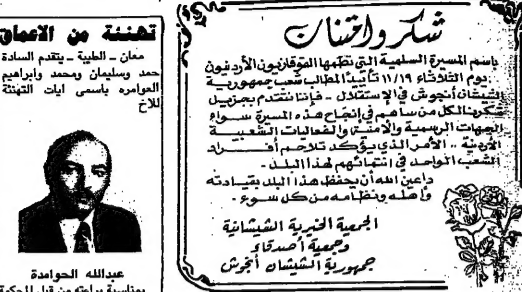 شكر وامتنان
باسم المسيرة السلمية التي نظمها القوقازيون الأردنيون
يوم الثلاثاء ١١/١٩ تأييداً لمطالب شعب جمهورية
الشيشان أنجوش في الإستقلال - فإننا نتقدم بجزيل
شكرنا لكل من ساهم في إنجاح هذه المسيرة سواء
الجهات الرسمية والأمنية والفعاليات الشعبية
الأردنية .. الأمر الذي يؤكد تلاحم أفراد
الشعب الواحد في انتمائهم لهذا البلد -
داعين الله أن يحفظ هذا البلد بقيادته
وأهله ونظامه من كل سوء -
الجمعية الخيرية الشيشانية
وجمعية أصدقاء
جمهورية الشيشان أنجوش
تهنئة من الاعماق
معان - الطيبة - يتقدم السادة
حمد وسليمان ومحمد وابراهيم
العوامره باسمى ايات التهنئة
للاخ
عبدالله الحوامدة
بمناسبة براءته من قبل المحكمة